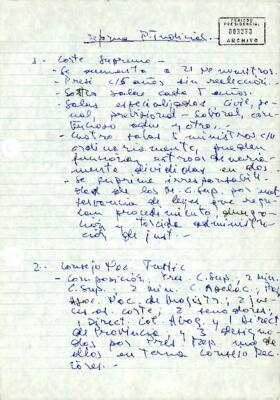 PERIODO
PRESIDENCIAL
003273
ARCHIVO
Reforma P. Judicial.-
1.- Corte Suprema.-
- Se aumenta a 21 Ministros.
- Presi c/5 años sin reelección.-
- Sorteo salas cada años.-
- Salas especializadas civil, pe-
nal, previsional - laboral, con-
tencioso adm. y otra.-
- Cuatro salas 5 ministros c/u
ordinariamente, pueden
funcionar extraordinaria-
mente divididas en dos.-
- Se suprime irresponsabili-
dad de los M. C. Sup. por inob-
servancia de leyes que regu-
lan procedimiento, denega-
ción y torcida administra-
ción de just.-
2.- Consejo Nac. Justic
- Composición: Pres. C. Sup.; 2 min.
C. Sup.; 2 min. C. Apelac.; Pres.
Asoc. Nac. de Magistr.; 2 jue-
ces as. corte; 2 senadores
; Direct. Col. Abog. y 1 Direct.
de Provincia, y 3 designa-
dos por Pres. Rep. uno de
ellos en terna Consejo Rec-
tores.-